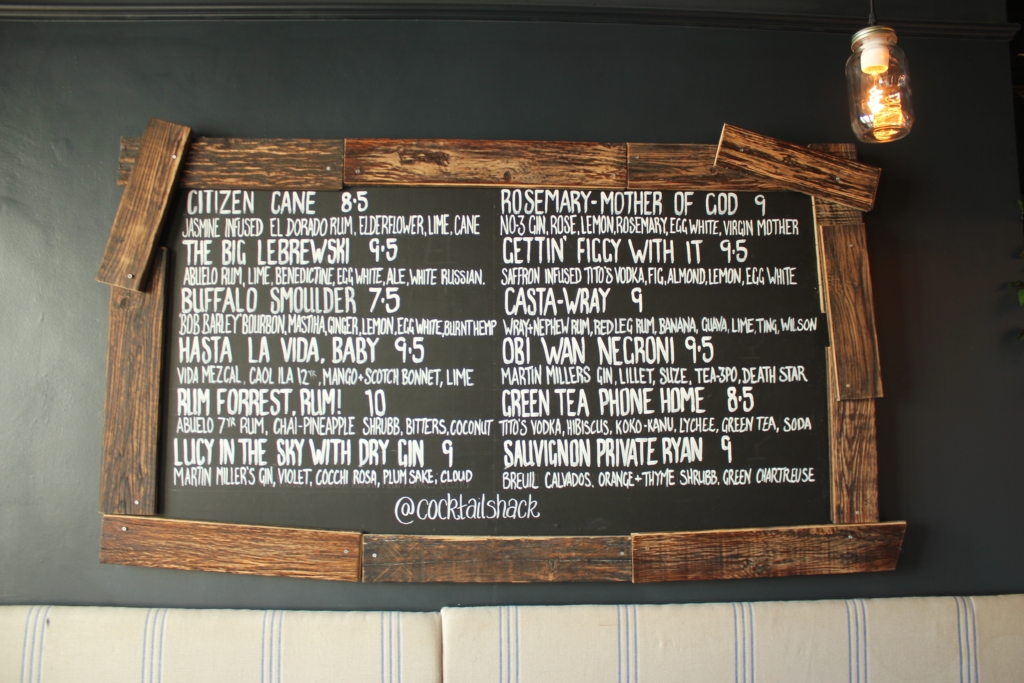 CITIZEN CANE 8.5
JASMINE INFUSED EL DORADO RUM, ELDERFLOWER, LIME, CANE
THE BIG LEBREWSKI 9.5
ABUELO RUM, LIME, BENEDICTINE, EGG WHITE, ALE, WHITE RUSSIAN.
BUFFALO SMOULDER 7.5
BOB BARLEY BOURBON, MASTIHA, GINGER, LEMON, EGG WHITE, BURNT HEMP
HASTA LA VIDA, BABY 9.5
VIDA MEZCAL, CAOL ILA 12YR, MANGO + SCOTCH BONNET, LIME
RUM FORREST, RUM! 10
ABUELO 7YR RUM, CHAI-PINEAPPLE SHRUBB, BITTERS, COCONUT
LUCY IN THE SKY WITH DRY GIN 9
MARTIN MILLER'S GIN, VIOLET, COCCHI ROSA, PLUM SAKE, CLOUD
ROSEMARY-MOTHER OF GOD 9
NO.3 GIN, ROSE, LEMON, ROSEMARY, EGG WHITE, VIRGIN MOTHER
GETTIN' FIGGY WITH IT 9.5
SAFFRON INFUSED TITO'S VODKA, FIG, ALMOND, LEMON, EGG WHITE
CASTA-WRAY 9
WRAY+NEPHEW RUM, RED LEG RUM, BANANA, GUAVA, LIME, TING, WILSON
OBI WAN NEGRONI 9.5
MARTIN MILLERS GIN, LILLET, SUZE, TEA-3PO, DEATH STAR
GREEN TEA PHONE HOME 8.5
TITO'S VODKA, HIBISCUS, KOKO-KANU, LYCHEE, GREEN TEA, SODA
SAUVIGNON PRIVATE RYAN 9
BREUIL CALVADOS, ORANGE + THYME SHRUBB, GREEN CHARTREUSE
@cocktailshack